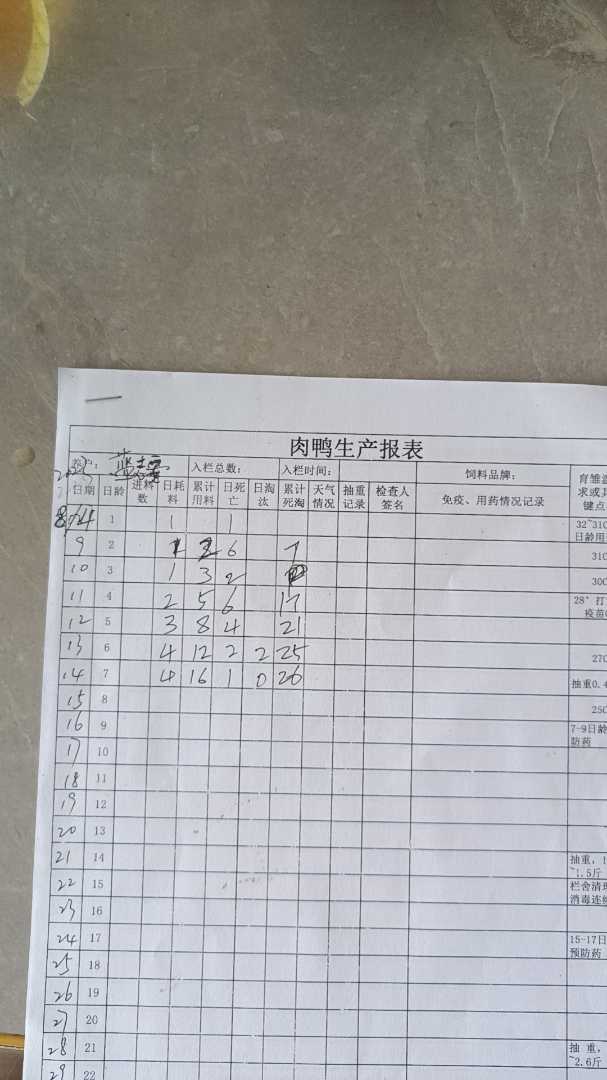 肉鸭生产报表
入栏总数： 入栏时间： 饲料品牌：
日期 日龄 进料数 日耗料 累计用料 日死亡 日淘汰 累计死淘 天气情况 抽重记录 检查人签名 免疫、用药情况记录
1 1 1 32~31
日龄用
9 2 1 2 6 7 31
10 3 1 3 2 300
11 4 2 5 6 17 28° 打
疫苗
12 5 3 8 4 21
13 6 4 12 2 2 25 270
14 7 4 16 1 0 26 抽重0.4
15 8 250
16 9 7-9日龄
防药
17 10
18 11
19 12
20 13
21 14 抽重，1
~1.5斤
22 15 栏舍清
消毒连
23 16
24 17 15-17日
预防药
25 18
26 19
27 20
28 21 抽重，
~2.6斤
29 22